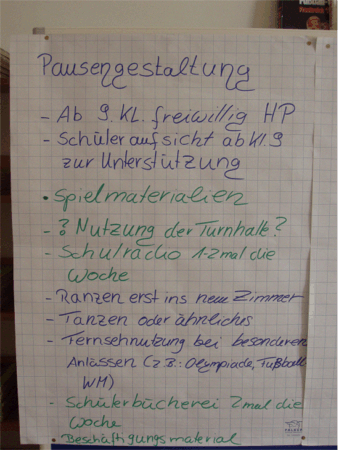 Pausengestaltung
- Ab 9. KL. freiwillig HP
- Schüleraufsicht ab Kl. 9
zur Unterstützung
• Spielmaterialien
- ? Nutzung der Turnhalle?
- Schulradio 1-2 mal die
Woche
- Ranzen erst ins neue Zimmer
- Tanzen oder ähnliches
- Fernsehnutzung bei besonderen
Anlässen (z.B.: Olympiade, Fußball
WM)
- Schülerbücherei 2 mal die
Woche
Beschäftigungsmaterial